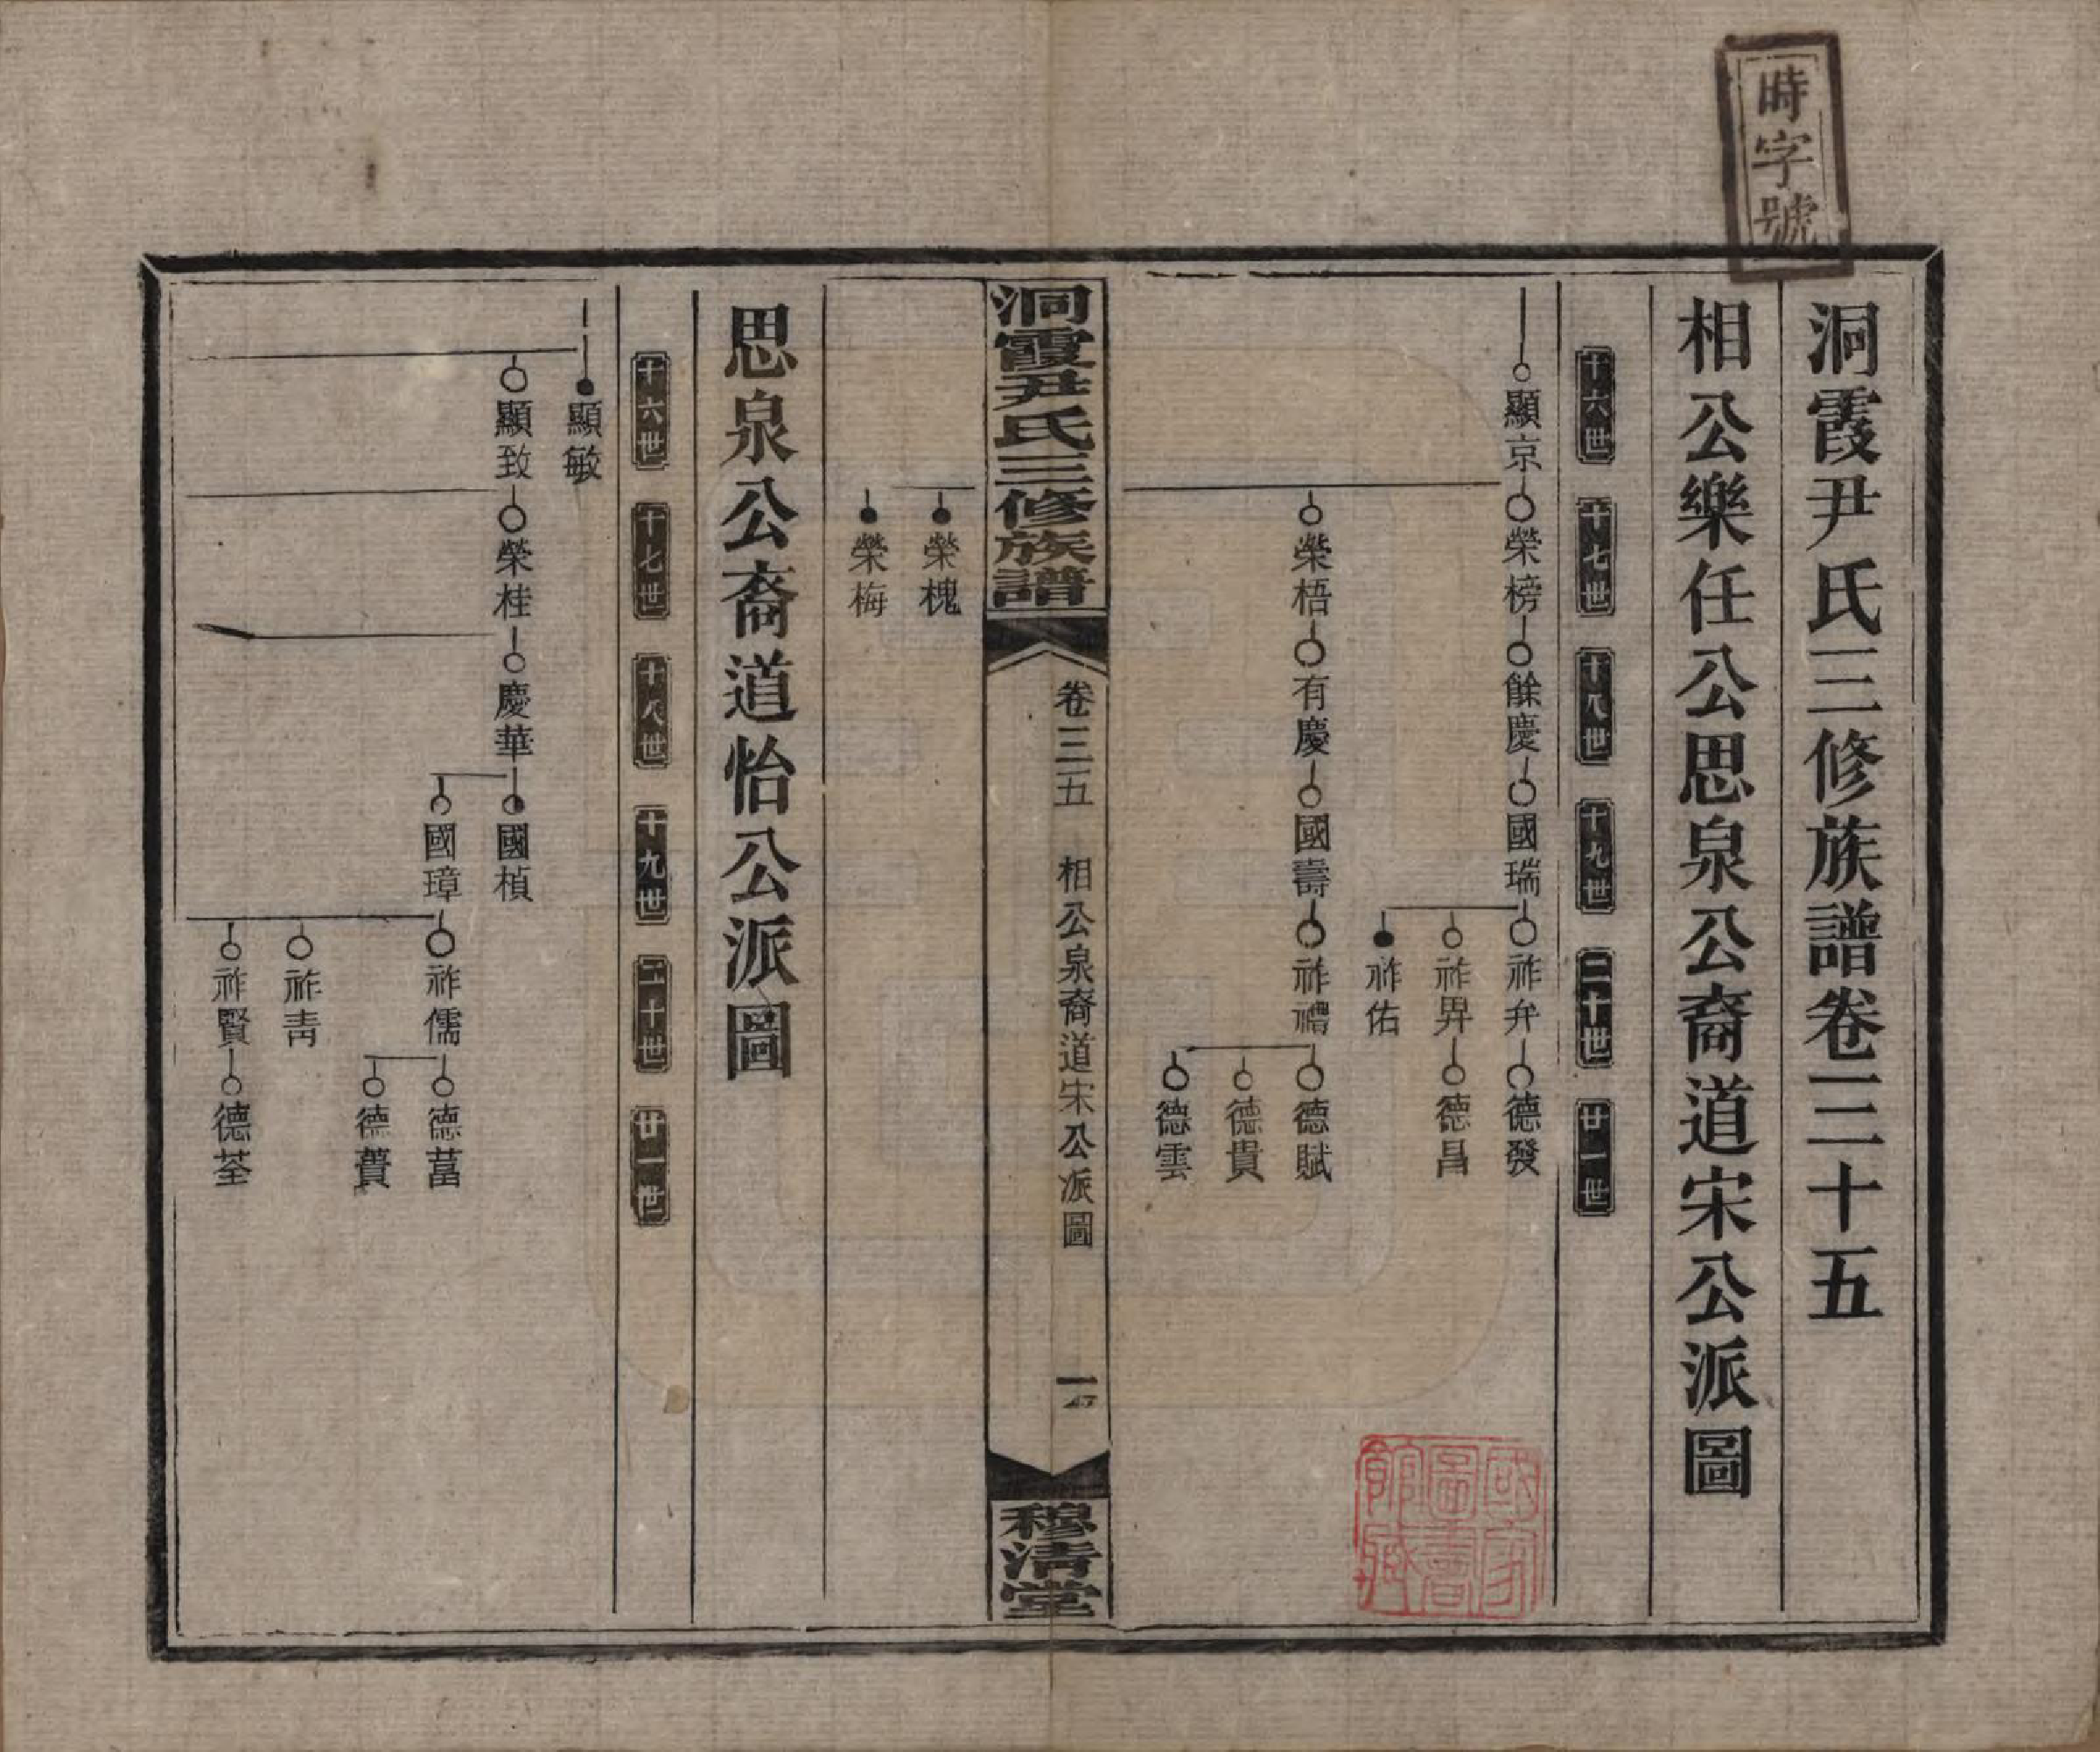 時字號
洞霞尹氏三修族譜卷三十五
相公樂任公思泉公裔道宋公派圖
十六世 十七世 十八世 十九世 二十世 廿一世
顯京 榮榜 餘慶 國瑞 祚弁 德發
祚畀 德昌
祚佑
榮梧 有慶 國壽 祚禮 德賦
德貴
德雲
洞霞尹氏三修族譜
卷三五 相公泉裔道宋公派圖
一
穆清堂
榮槐
榮梅
思泉公裔道怡公派圖
十六世 十七世 十八世 十九世 二十世 廿一世
顯敏
顯致 榮桂 慶華 國楨
國璋 祚儒 德菖
德蕢
祚靑
祚賢 德荃
國家圖書館藏